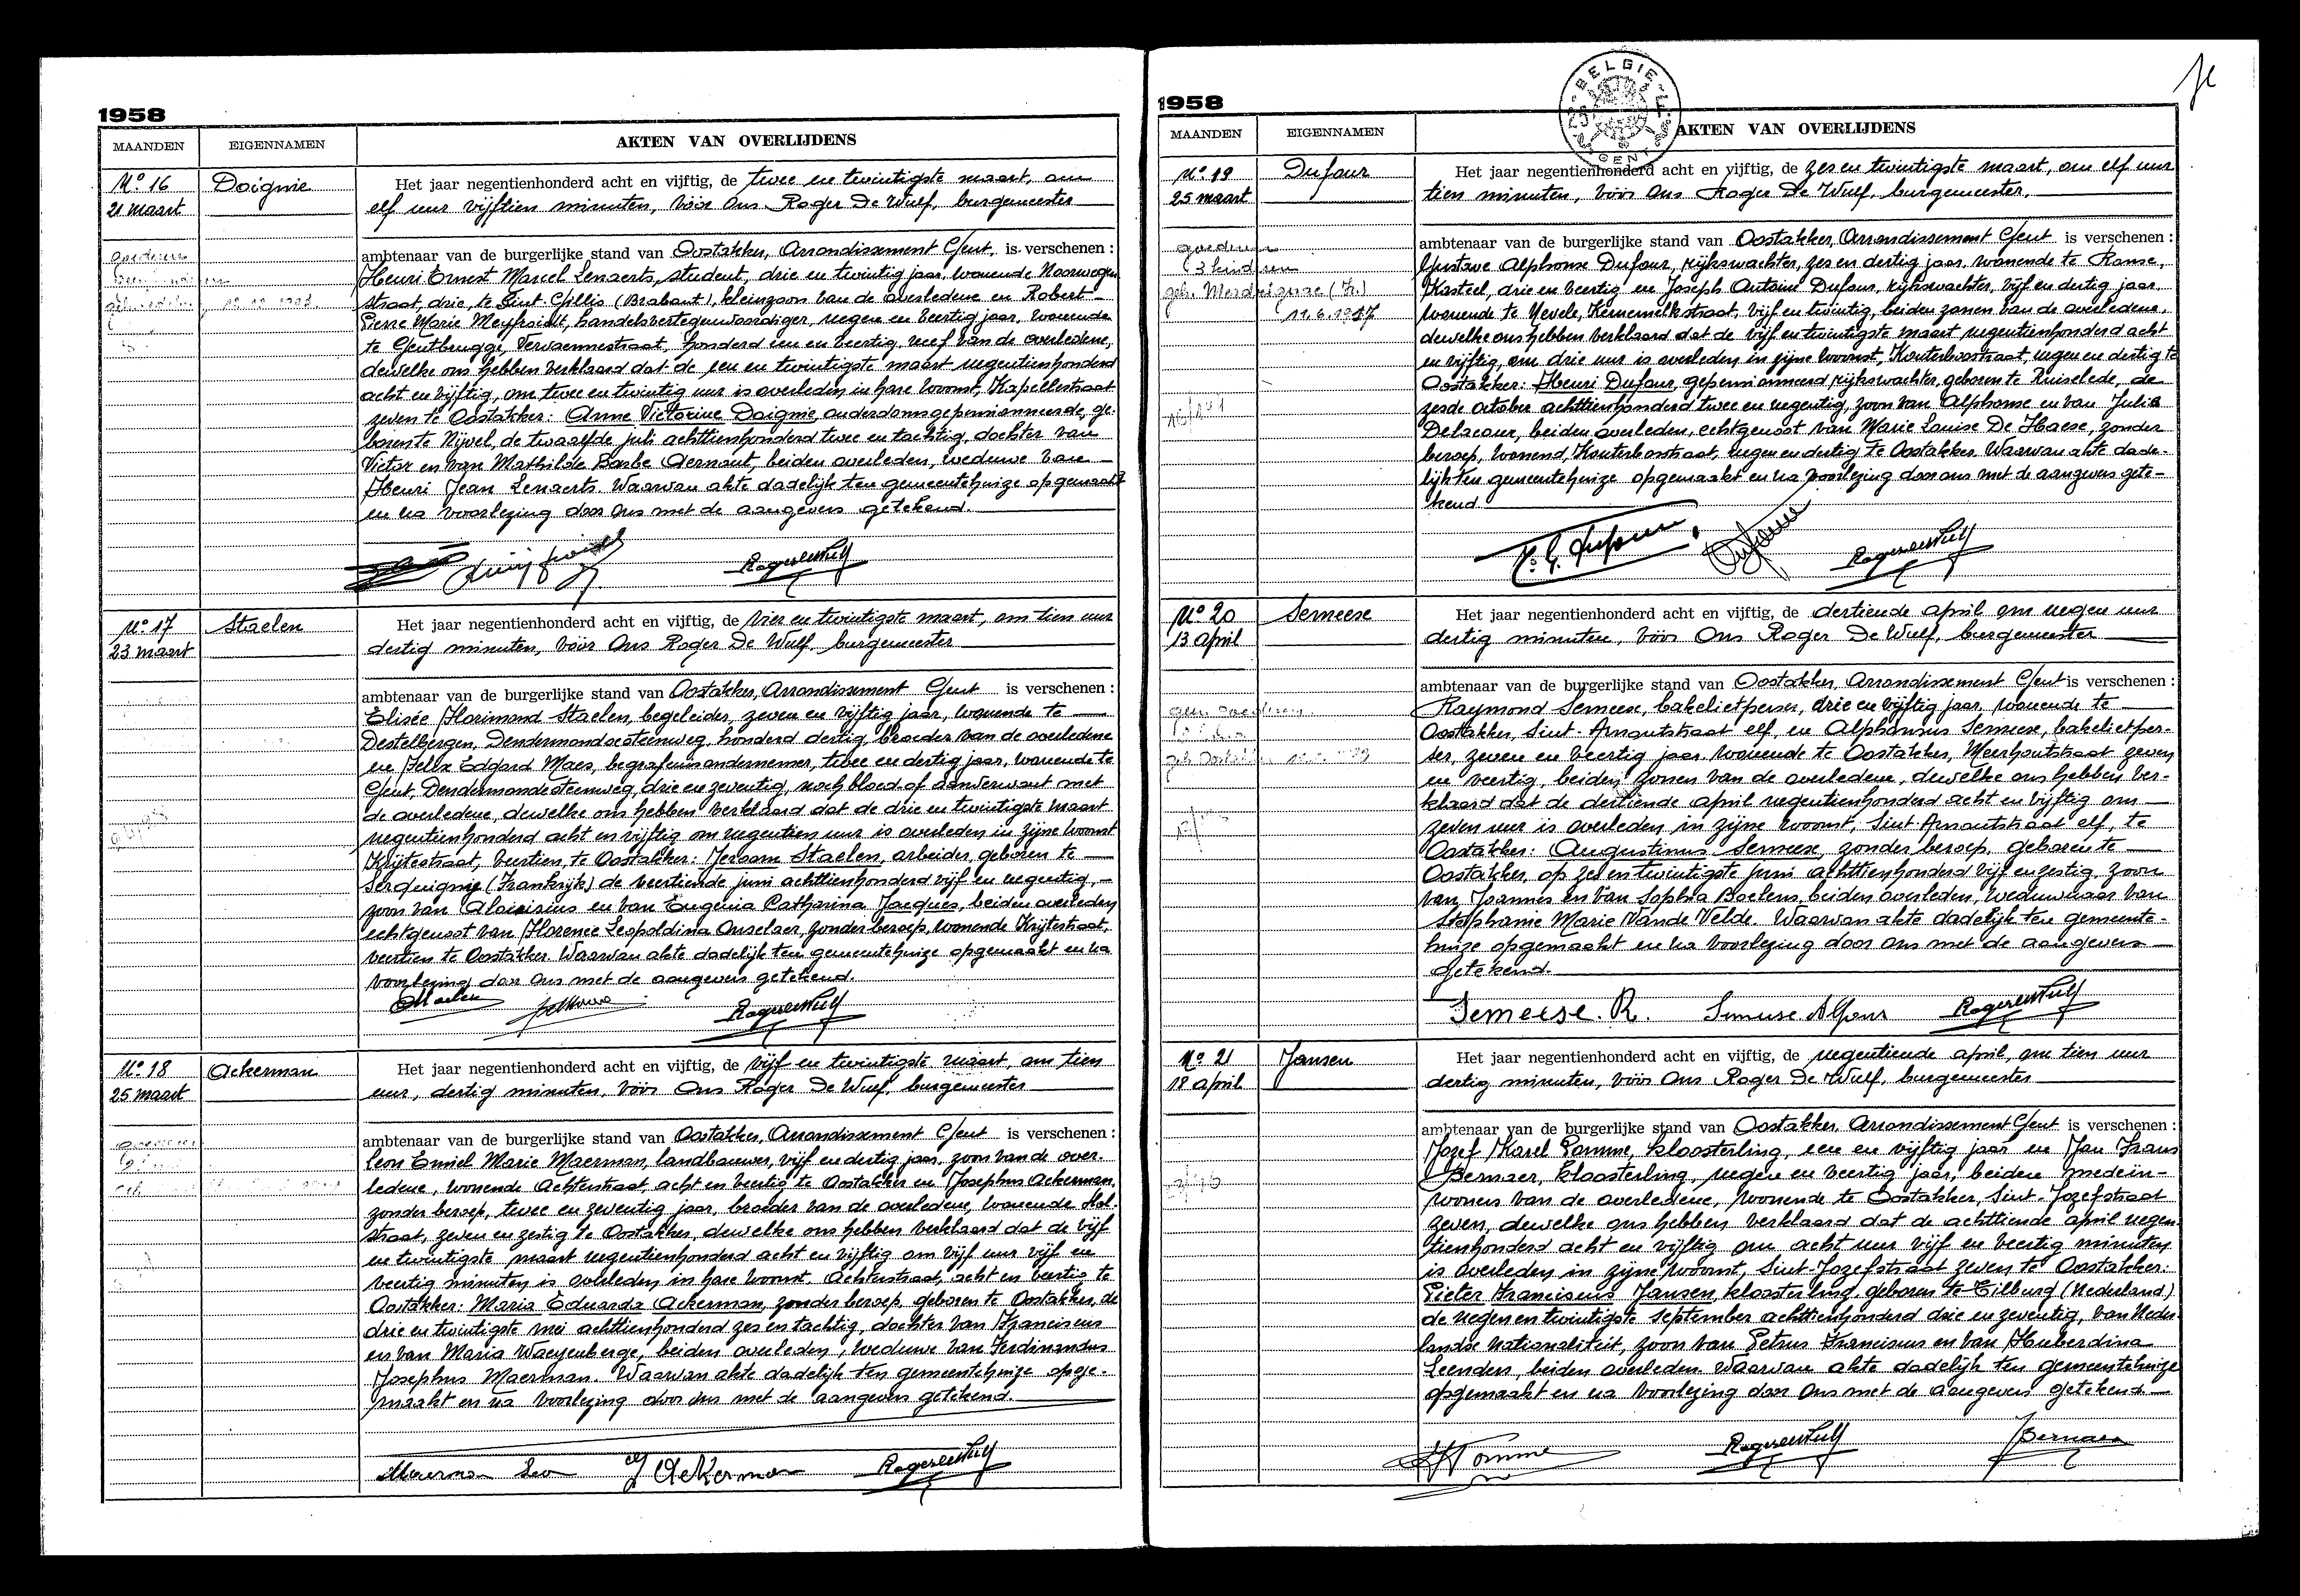 1958
MAANDEN EIGENNAMEN AKTEN VAN OVERLIJDENS
No 16 Doignie
21 maart
Het jaar negentienhonderd acht en vijftig, de twee en twintigste maart, om
elf uur vijftien minuten, vóór Ons Roger De Wulf, burgemeester
ambtenaar van de burgerlijke stand van Oostakker, Arrondissement Gent, is verschenen :
Henri Ernest Marcel Lenaerts, student, drie en twintig jaar, wonende Noorwegen
straat, drie, te Sint-Gillis (Brabant), kleinzoon van de overledene en Robert
Pierre Marie Meyfroidt, handelsvertegenwoordiger, negen en veertig jaar, wonende
te Gentbrugge, Vervaennestraat, honderd een en veertig, neef van de overledene,
dewelke ons hebben verklaard dat de een en twintigste maart negentienhonderd
acht en vijftig, om twee en twintig uur is overleden in hare woonst, Kapellestraat
zeven te Oostakker: Anne Victorine Doignie, ouderdomsgepensionneerde, ge-
boren te Nijvel, de twaalfde juli achttienhonderd twee en tachtig, dochter van
Victor en van Mathilde Barbe Aernout, beiden overleden, weduwe van
Henri Jean Lenaerts. Waarvan akte dadelijk ten gemeentehuize opgemaakt
en na voorlezing door Ons met de aangevers getekend.
No 17 Staelen
23 maart
Het jaar negentienhonderd acht en vijftig, de vier en twintigste maart, om tien uur
dertig minuten, vóór Ons Roger De Wulf, burgemeester
ambtenaar van de burgerlijke stand van Oostakker, Arrondissement Gent is verschenen :
Elisée Florimond Staelen, begeleider, zeven en vijftig jaar, wonende te
Destelbergen, Dendermondsesteenweg, honderd dertig, broeder van de overledene
en Felix Edgard Maes, begrafenisondernemer, twee en dertig jaar, wonende te
Gent, Dendermondesteenweg, drie en zeventig, noch bloed of aanverwant met
de overledene, dewelke ons hebben verklaard dat de drie en twintigste maart
negentienhonderd acht en vijftig om negentien uur is overleden in zijne woonst
Krijtestraat, veertien, te Oostakker: Jeroom Staelen, arbeider, geboren te
Serquignie (Frankrijk) de veertiende juni achttienhonderd vijf en negentig,
zoon van Aloisius en van Eugenia Catharina Jacques, beiden overleden
echtgenoot van Florence Leopoldina Onselaer, zonder beroep, wonende Krijtestraat,
veertien te Oostakker. Waarvan akte dadelijk ten gemeentehuize opgemaakt en na
voorlezing door Ons met de aangevers getekend.
No 18 Ackerman
25 maart
Het jaar negentienhonderd acht en vijftig, de vijf en twintigste maart, om tien
uur, dertig minuten, vóór Ons Roger De Wulf, burgemeester
ambtenaar van de burgerlijke stand van Oostakker, Arrondissement Gent is verschenen :
Leon Emiel Marie Maerman, landbouwer, vijf en dertig jaar, zoon van de over
ledene, wonende Achterstraat, acht en veertig te Oostakker en Josephus Ackerman,
zonder beroep, twee en zeventig jaar, broeder van de overledene, wonende Hol-
straat, zeven en zestig te Oostakker, dewelke ons hebben verklaard dat de vijf
en twintigste maart negentienhonderd acht en vijftig om vijf uur vijf en
veertig minuten is overleden in hare woonst, Achterstraat, acht en veertig te
Oostakker: Maria Eduarda Ackerman, zonder beroep, geboren te Oostakker, de
drie en twintigste mei achttienhonderd zes en tachtig, dochter van Franciscus
en van Maria Waeyenberge, beiden overleden, weduwe van Ferdinandus
Josephus Maerman. Waarvan akte dadelijk ten gemeentehuize opge-
maakt en na voorlezing door Ons met de aangevers getekend.
Maerman Leon J Ackerman
1958
BELGIE
GENT
MAANDEN EIGENNAMEN AKTEN VAN OVERLIJDENS
No 19 Dufour
25 maart
Het jaar negentienhonderd acht en vijftig, de zes en twintigste maart, om elf uur
tien minuten, vóór Ons Roger De Wulf, burgemeester.
ambtenaar van de burgerlijke stand van Oostakker, Arrondissement Gent is verschenen :
Gustave Alphonse Dufour, rijkswachter, zes en dertig jaar, wonende te Ronse,
Kasteel, drie en veertig en Joseph Antoine Dufour, rijkswachter, vijf en dertig jaar,
wonende te Nevele, Kernemelkstraat, vijf en twintig, beiden zonen van de overledene,
dewelke ons hebben verklaard dat de vijf en twintigste maart negentienhonderd acht
en vijftig, om drie uur is overleden in zijne woonst, Kouterbosstraat, negen en dertig te
Oostakker: Henri Dufour, gepensionneerd rijkswachter, geboren te Ruiselede, de
zesde october achttienhonderd twee en negentig, zoon van Alphonse en van Julia
Delacour, beiden overleden, echtgenoot van Marie Louise De Haese, zonder
beroep, wonend, Kouterbosstraat, negen en dertig te Oostakker. Waarvan akte dade-
lijk ten gemeentehuize opgemaakt en na voorlezing door ons met de aangevers gete-
kend
3 kinderen
No 20 Semeese
13 april
Het jaar negentienhonderd acht en vijftig, de dertiende april om negen uur
dertig minuten, vóór Ons Roger De Wulf, burgemeester
ambtenaar van de burgerlijke stand van Oostakker, Arrondissement Gent is verschenen :
Raymond Semeese, bakelietperser, drie en vijftig jaar, wonende te
Oostakker, Sint-Arnoutstraat elf, en Alphonsus Semeese, bakelietper-
ser, zeven en veertig jaar, wonende te Oostakker, Meerhoutstraat zeven
en veertig, beiden zonen van de overledene, dewelke ons hebben ver-
klaard dat de dertiende april negentienhonderd acht en vijftig om
zeven uur is overleden in zijne woonst, Sint Arnoutstraat elf, te
Oostakker: Augustinus Semeese, zonder beroep, geboren te
Oostakker, op zes en twintigste juni achttienhonderd vijf en zestig, zoon
van Joannes en van Sophia Boelens, beiden overleden, weduwnaar van
Stephanie Marie Vande Velde. Waarvan akte dadelijk ten gemeente-
huize opgemaakt en na voorlezing door Ons met de aangevers
getekend.
Semeese. R. Semeese Alfons
No 21 Jansen
18 april
Het jaar negentienhonderd acht en vijftig, de negentiende april, om tien uur
dertig minuten, vóór Ons Roger De Wulf, burgemeester
ambtenaar van de burgerlijke stand van Oostakker, Arrondissement Gent is verschenen :
Jozef Karel Pomme, kloosterling, een en vijftig jaar en Jan Frans
Bernaer, kloosterling, negen en veertig jaar, beiden medein-
woners van de overledene, wonende te Oostakker, Sint-Jozefstraat
zeven, dewelke ons hebben verklaard dat de achttiende april negen
tienhonderd acht en vijftig om acht uur vijf en veertig minuten
is overleden in zijne woonst, Sint-Jozefstraat zeven te Oostakker:
Pieter Franciscus Jansen, kloosterling, geboren te Tilburg (Nederland)
de negen en twintigste september achttienhonderd drie en zeventig, van Neder
landse nationaliteit, zoon van Petrus Franciscus en van Huberdina
Leenders, beiden overleden. Waarvan akte dadelijk ten gemeentehuize
opgemaakt en na voorlezing door Ons met de aangevers getekend